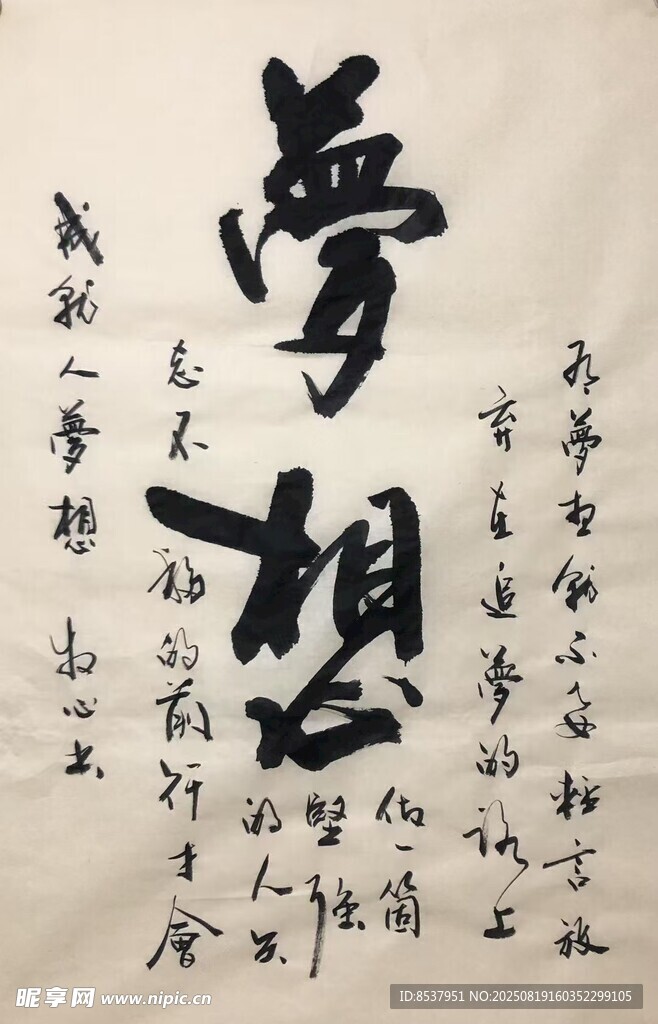 夢想
有夢想就不要輕言放
弃在追夢的路上
做一箇
堅强
的人只
志不移的前行才會
成就人夢想 牧心书
昵享网 www.nipic.cn
ID:8537951 NO:20250819160352299105